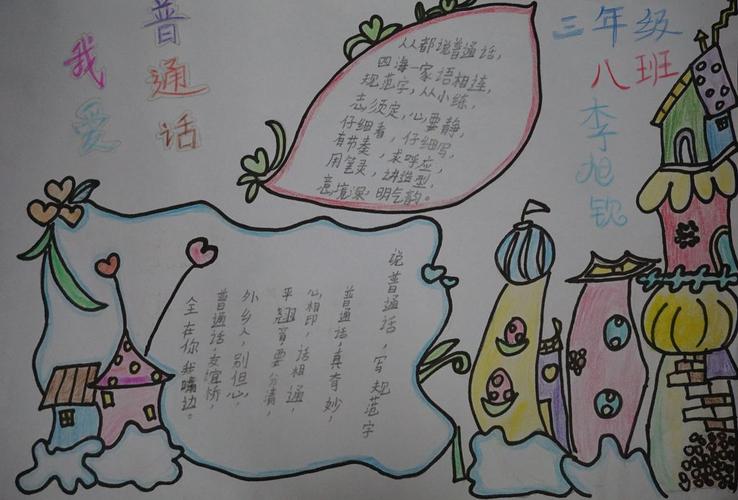 我爱
普通话
人人都说普通话，
四海一家语相连，
规范字，从小练，
志须定，心要静，
仔细看，仔细写，
有节奏，求呼应，
用笔灵，讲造型，
意境深，明气韵。
三年级
八班
李旭钦
说普通话，写规范字
普通话，真奇妙，
心相印，话相通，
平翘音，要分清，
外乡人，别但心，
普通话，友谊桥，
全在你我嘴边。